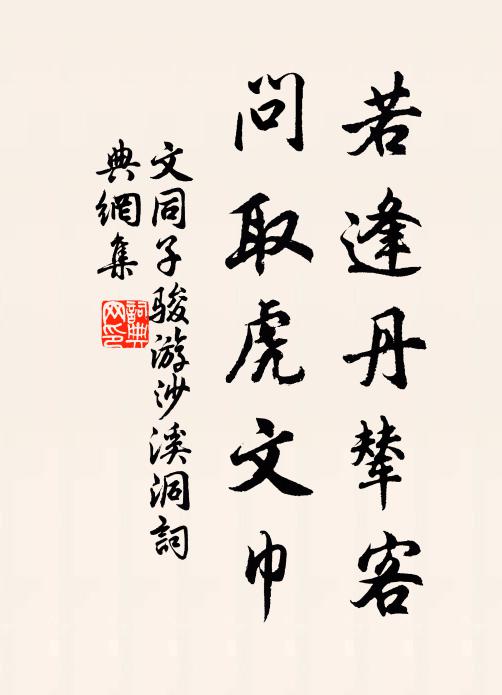 若逢丹輦客
問取虎文巾
文同子駿游沙溪洞詞
典網集
詞典网印